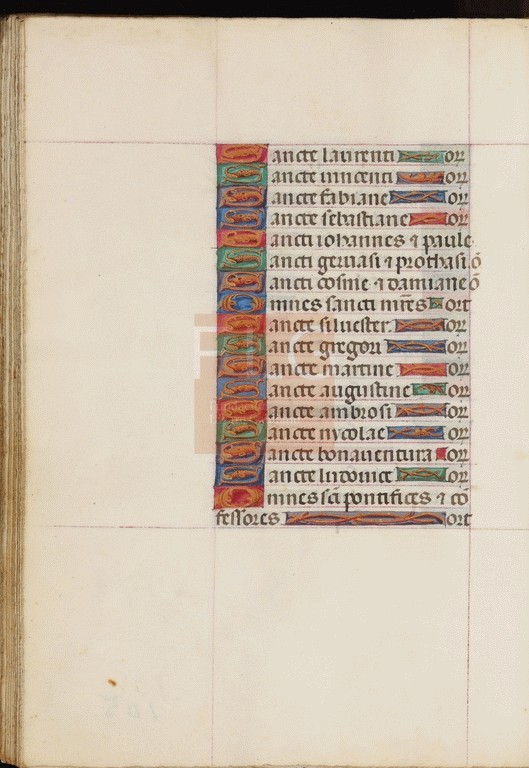 Sancte laurenti orꝝ
Sancte innocenti orꝝ
Sancte fabiane orꝝ
Sancte sebastiane orꝝ
Sancti iohannes ⁊ paule
Sancti geruasi ⁊ prothasi ō
Sancti cosme ⁊ damiane ō
Omnes sancti mr̄es ort
Sancte siluester. orꝝ
Sancte gregori orꝝ
Sancte martine orꝝ
Sancte augustine orꝝ
Sancte ambrosi orꝝ
Sancte nycolae orꝝ
Sancte bonauentura orꝝ
Sancte ludouice orꝝ
Omnes sc̄i pontifices ⁊ cō
fessores ort